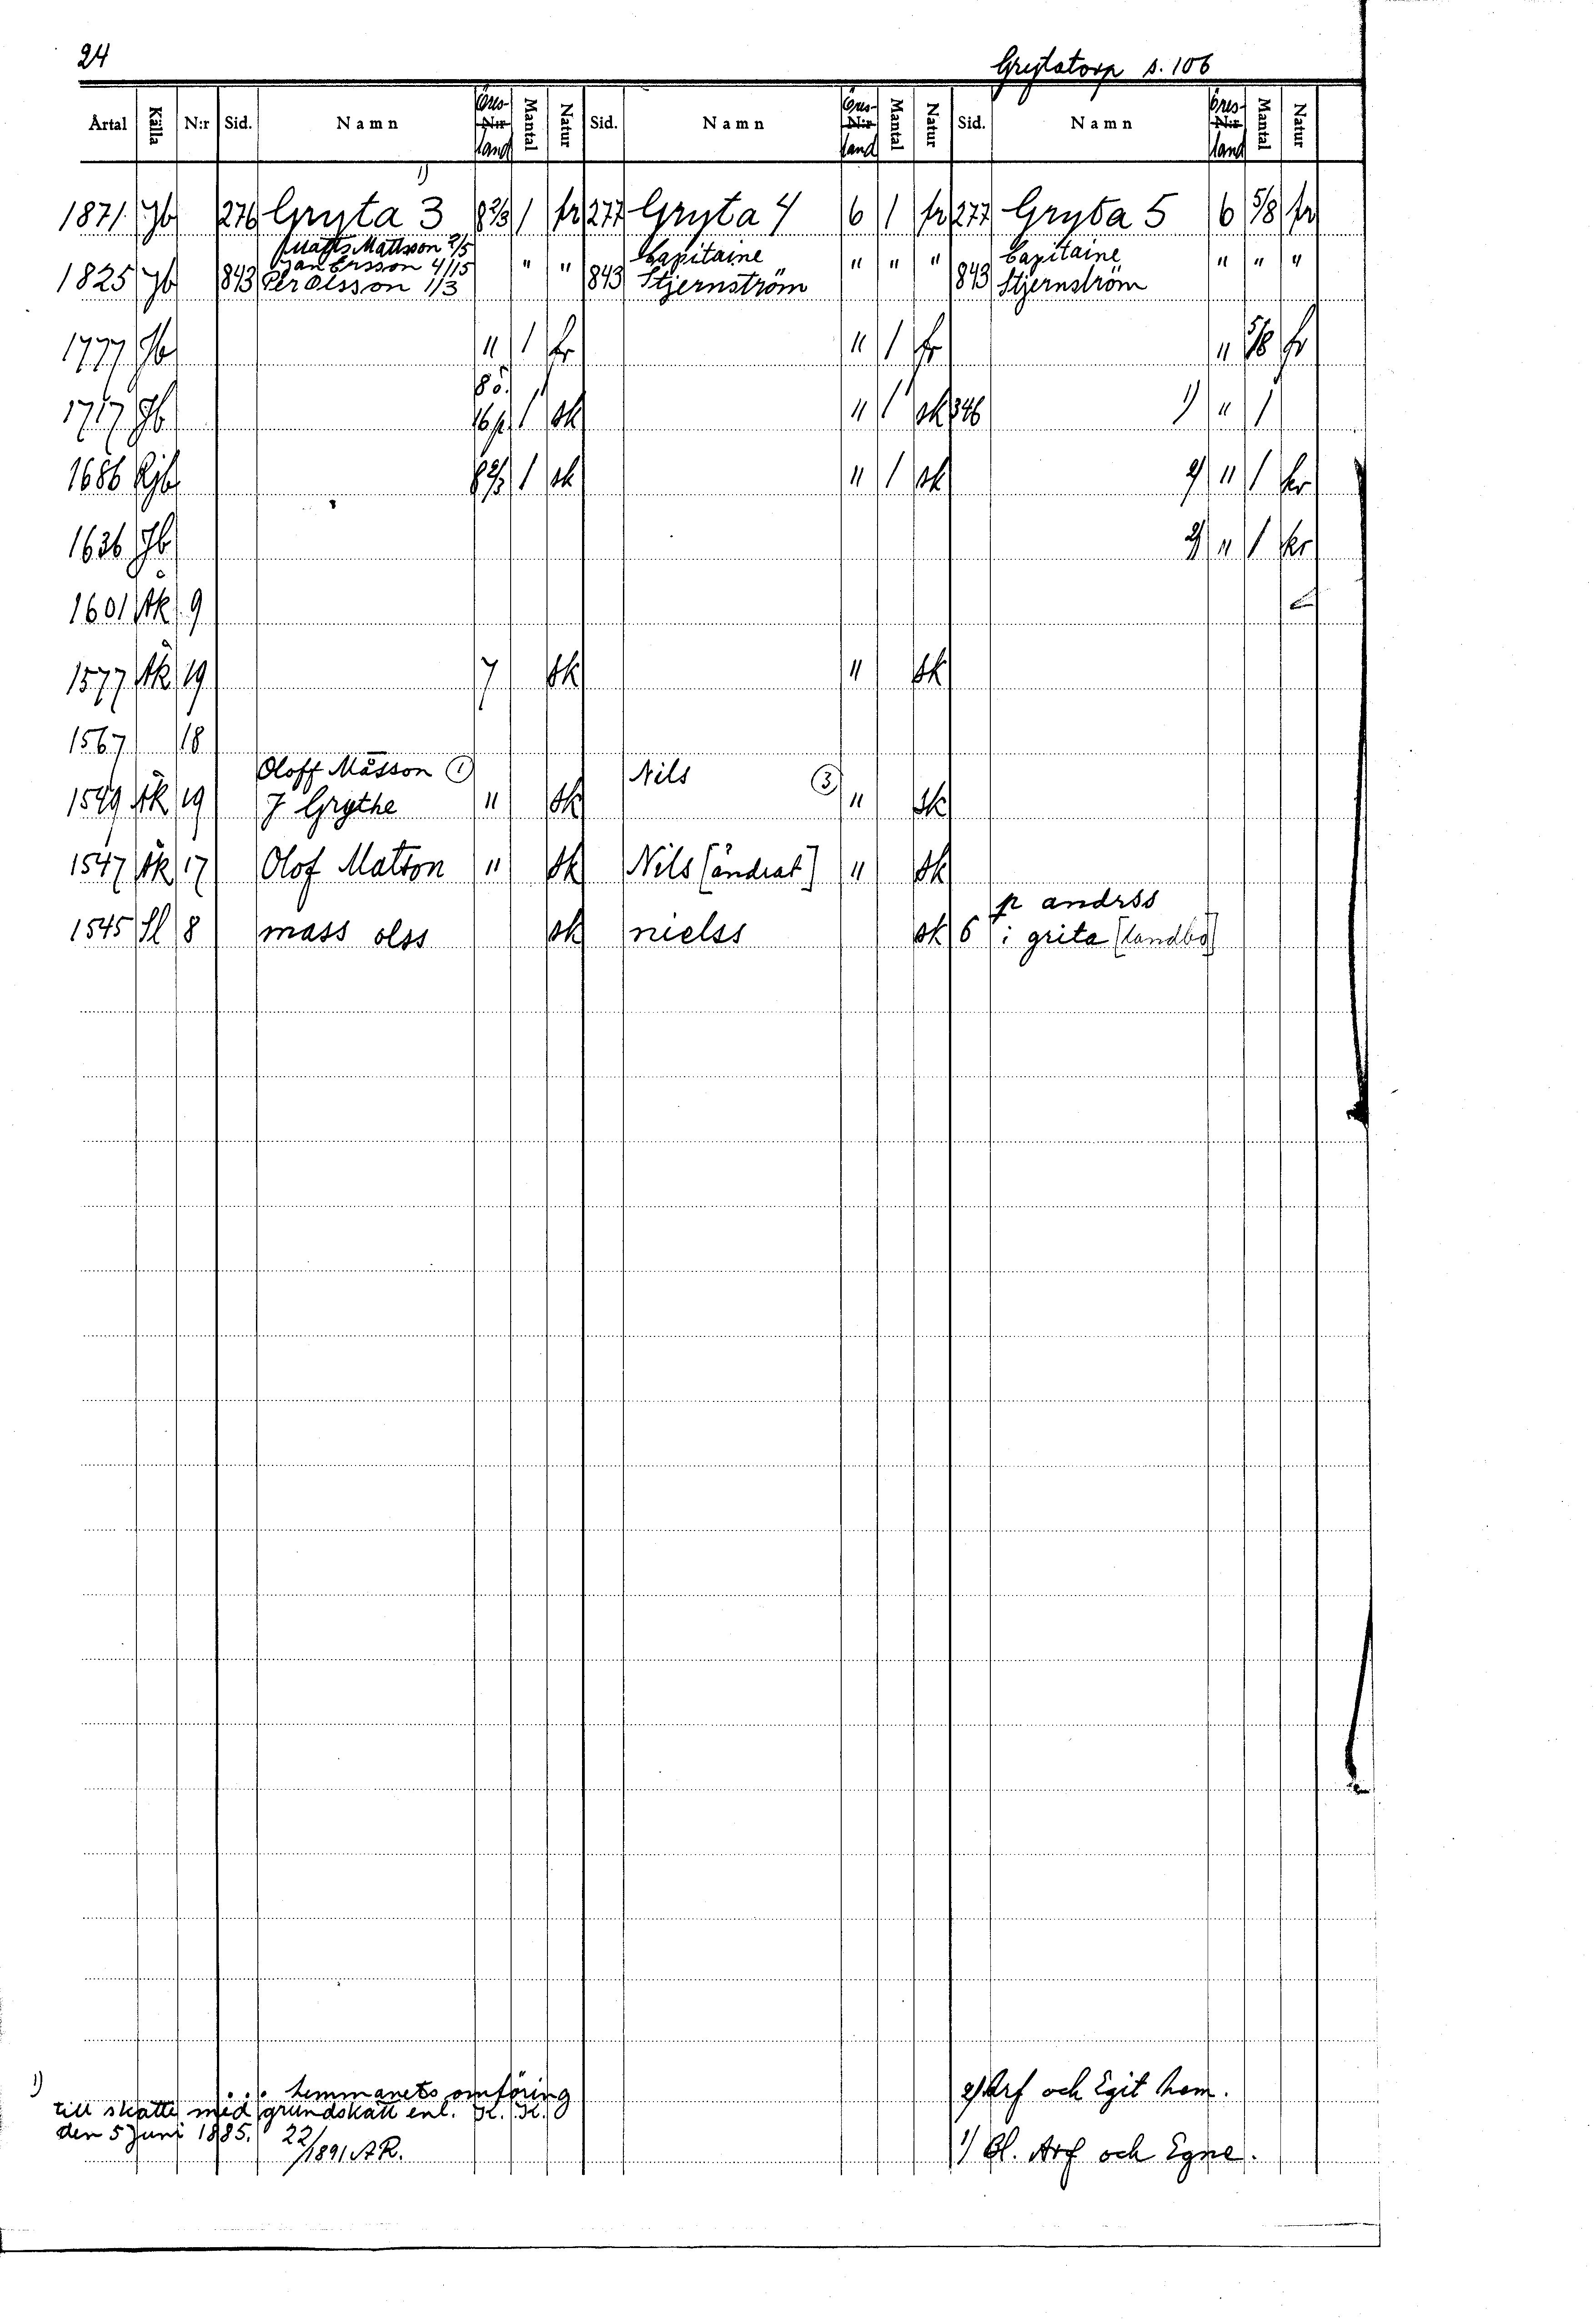 24
Grytatorp s. 106
Årtal Källa N:r Sid. Namn Öres- N:r land Mantal Natur Sid. Namn Öres- N:r land Mantal Natur Sid. Namn Öres- N:r land Mantal Natur
1)
1871 Jb 276 Gryta 3 8 2/3 1 fr 277 Gryta 4 6 1 fr 277 Gryta 5 6 5/8 fr
Matts Mattsson 2/5
Jan Ersson 4/15 " " Capitaine " " " Capitaine " " "
1825 Jb 843 Per Olsson 1/3 843 Stjernström 843 Stjernström
1777 Jb " 1 fr " 1 fr " 5/8 fr
8 ö.
1717 Jb 16 p. 1 sk " 1 sk 346 1) " 1
1686 Rjb 8 2/3 1 sk " 1 sk 2) " 1 kr
1636 Jb 2) " 1 kr
1601 Åk 9
1577 Åk 19 7 sk " sk
1567 18
Oloff Måsson ① Nils ③
1549 Åk 19 J Grythe " sk " sk
1547 Åk 17 Olof Matson " sk Nils [ändrat] " sk
p andrss
1545 Sl 8 mass olss sk nielss sk 6 i grita [landbo]
1) . . . hemmanets omföring
till skatte med grundskatt enl. K. K.
den 5 Juni 1885. 22/1891 AR.
2) Arf och Egit hem.
1) Bl. Arf och Egne.